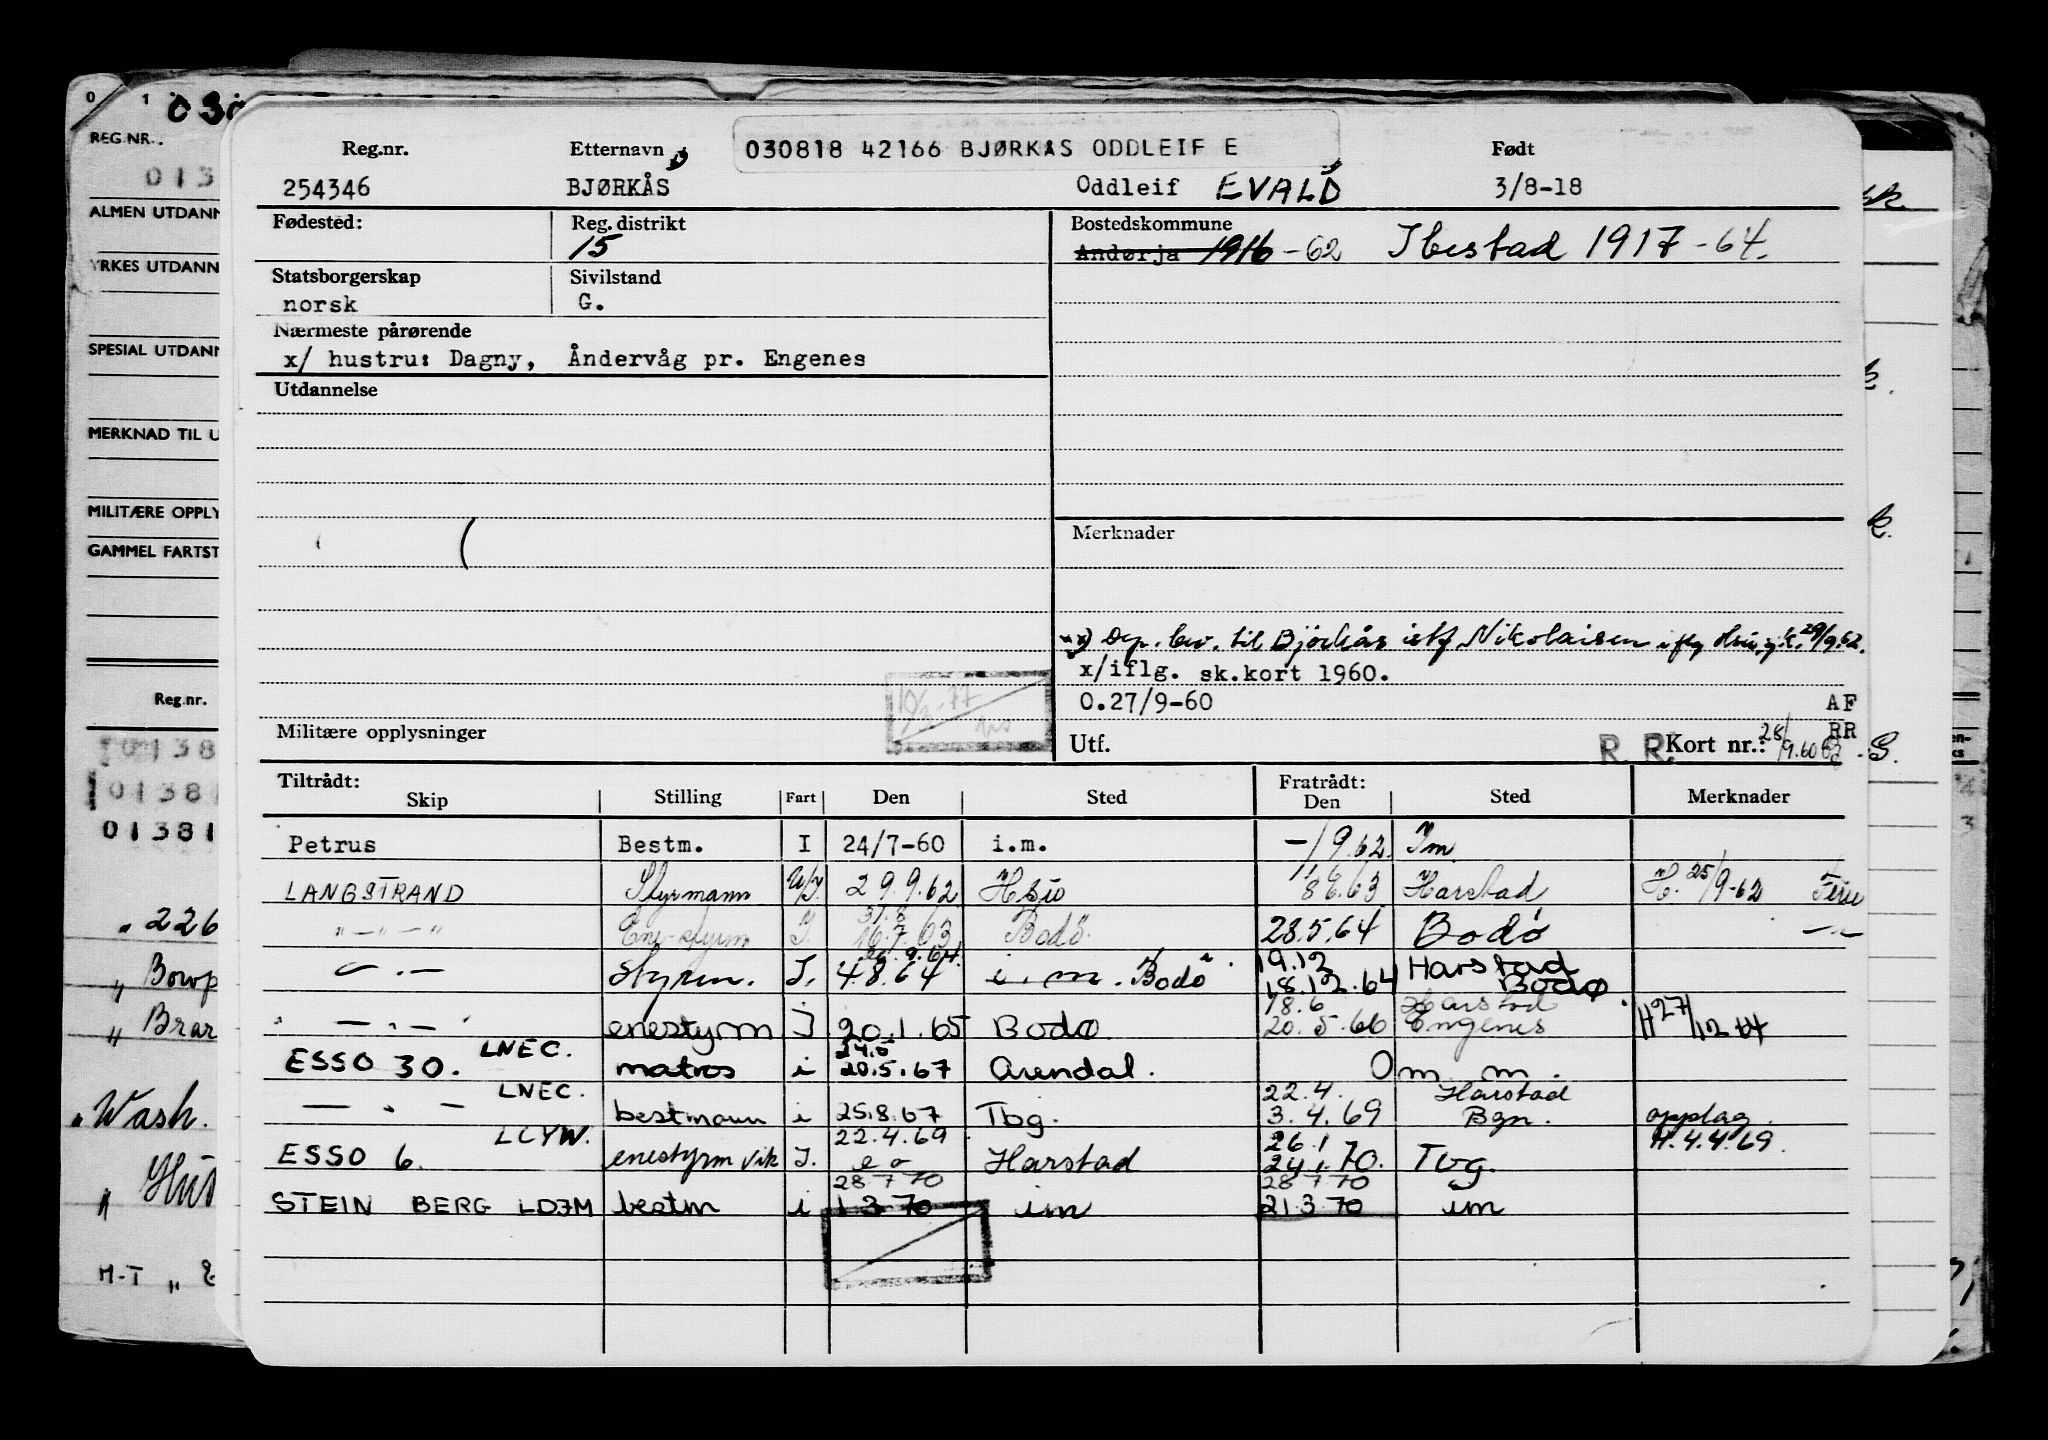 030818 42166 BJØRKÅS ODDLEIF E
Reg.nr. Etternavn Født
254346 BJØRKÅS Oddleif EVALD 3/8-18
Fødested: Reg. distrikt Bostedskommune
15 Andørja 1916 -62 Ibestad 1917 -64.
Statsborgerskap Sivilstand
norsk G.
Nærmeste pårørende
x/ hustru: Dagny, Åndervåg pr. Engenes
Utdannelse
Merknader
Dep. bev. til Bjørkås istf Nikolaisen iflg 29/9.62.
x/iflg. sk.kort 1960.
0.27/9-60 AF
Militære opplysninger Utf. R. R. Kort nr.: 28/9.60 RR
Tiltrådt: Fratrådt:
Skip Stilling Fart Den Sted Den Sted Merknader
Petrus Bestm. I 24/7-60 i.m. -/9.62. Im
LANGSTRAND Styrmann U/I. 29.9.62 Hsio 8.6.63 Harstad H. 25/9-62 Ferie
" — " — " Ene-styrm I. 16.7.63 Bodö 28.5.64 Bodö — " —
20.9.64. 19.12 Harstad
— " — styrm. I. 4.8.64 i. m. Bodö 18.12.64 Bodø
18.6 Harstad
— " — enestyrm I 20.1.65 Bodø 20.5.66 Engenes H 27/12 64
LNEC. 24.5
ESSO 30. matros i 20.5.67 Arendal. Om m.
LNEC. 22.4. Harstad
— " — bestmann i 25.8.67 Tbg. 3.4.69 Bgn. opplag.
LCYW. 22.4.69 26.1 H.4.4.69.
ESSO 6. enestyrm vik I. e o Harstad 24.1.70. Tvg.
28 7 70 28 7 70
STEIN BERG LDJM bestm i 1 3 70 im 21.3.70 im
REG.NR.
013
ALMEN UTDANN
YRKES UTDANN
SPESIAL UTDANN
MERKNAD TIL U
MILITÆRE OPPLY
GAMMEL FARTST
Reg.nr.
0138
01381
01381
" 226
" Brar
" Wash.
M-T "